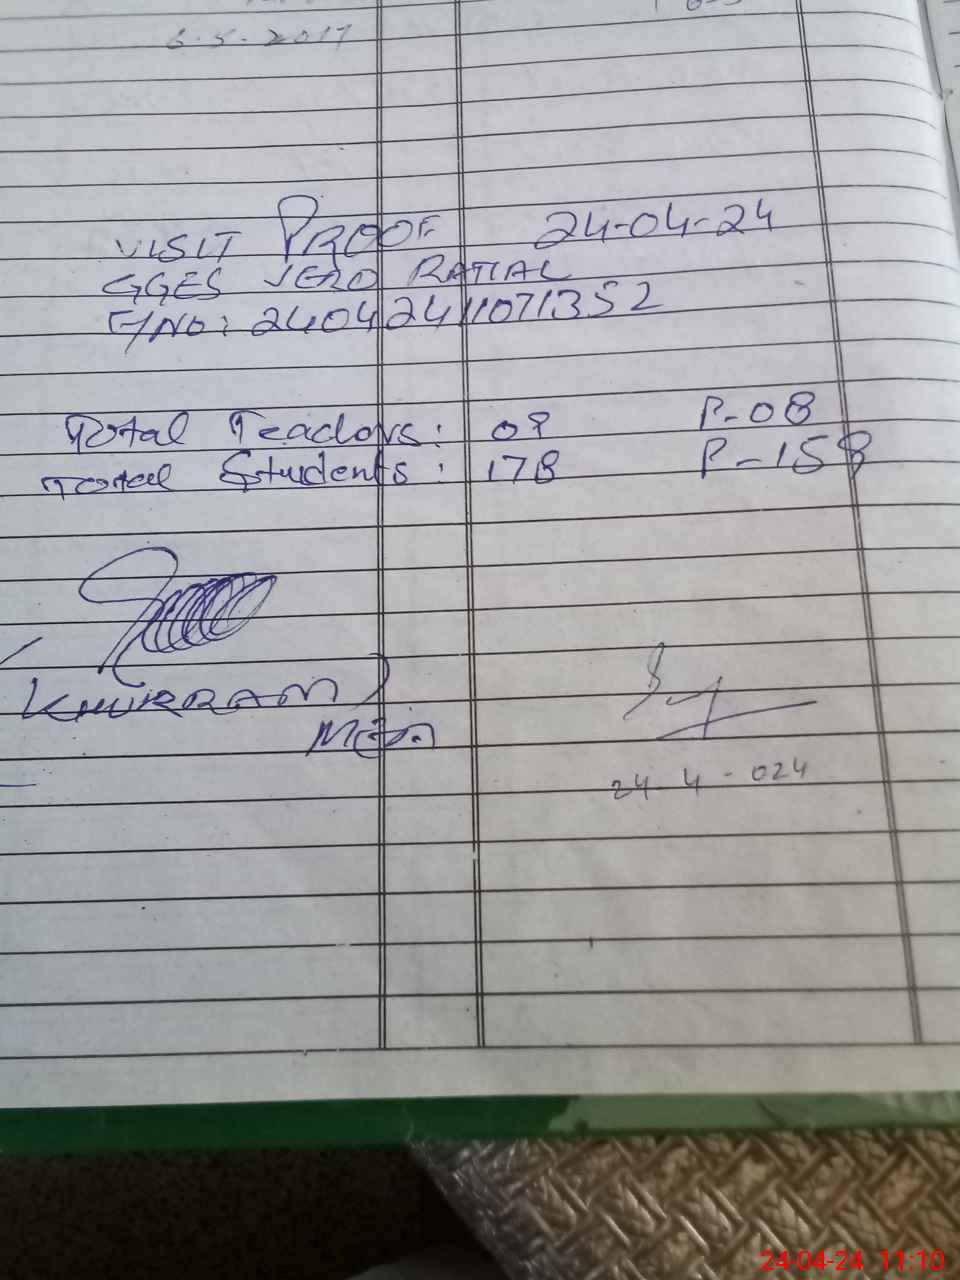 6.5.2017
VISIT PROOF 24-04-24
GGES JERO RATIAL
F/NO: 24042411071352
Total Teachers: 08 P-08
Total Students: 178 P-158
KHURRAM
MEA
24-4-024
24-04-24 11:10